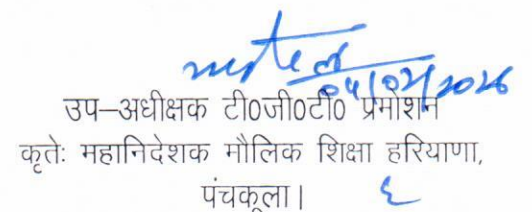 noted
04/02/2026
उप–अधीक्षक टी0जी0टी0 प्रमोशन
कृतेः महानिदेशक मौलिक शिक्षा हरियाणा,
पंचकूला।